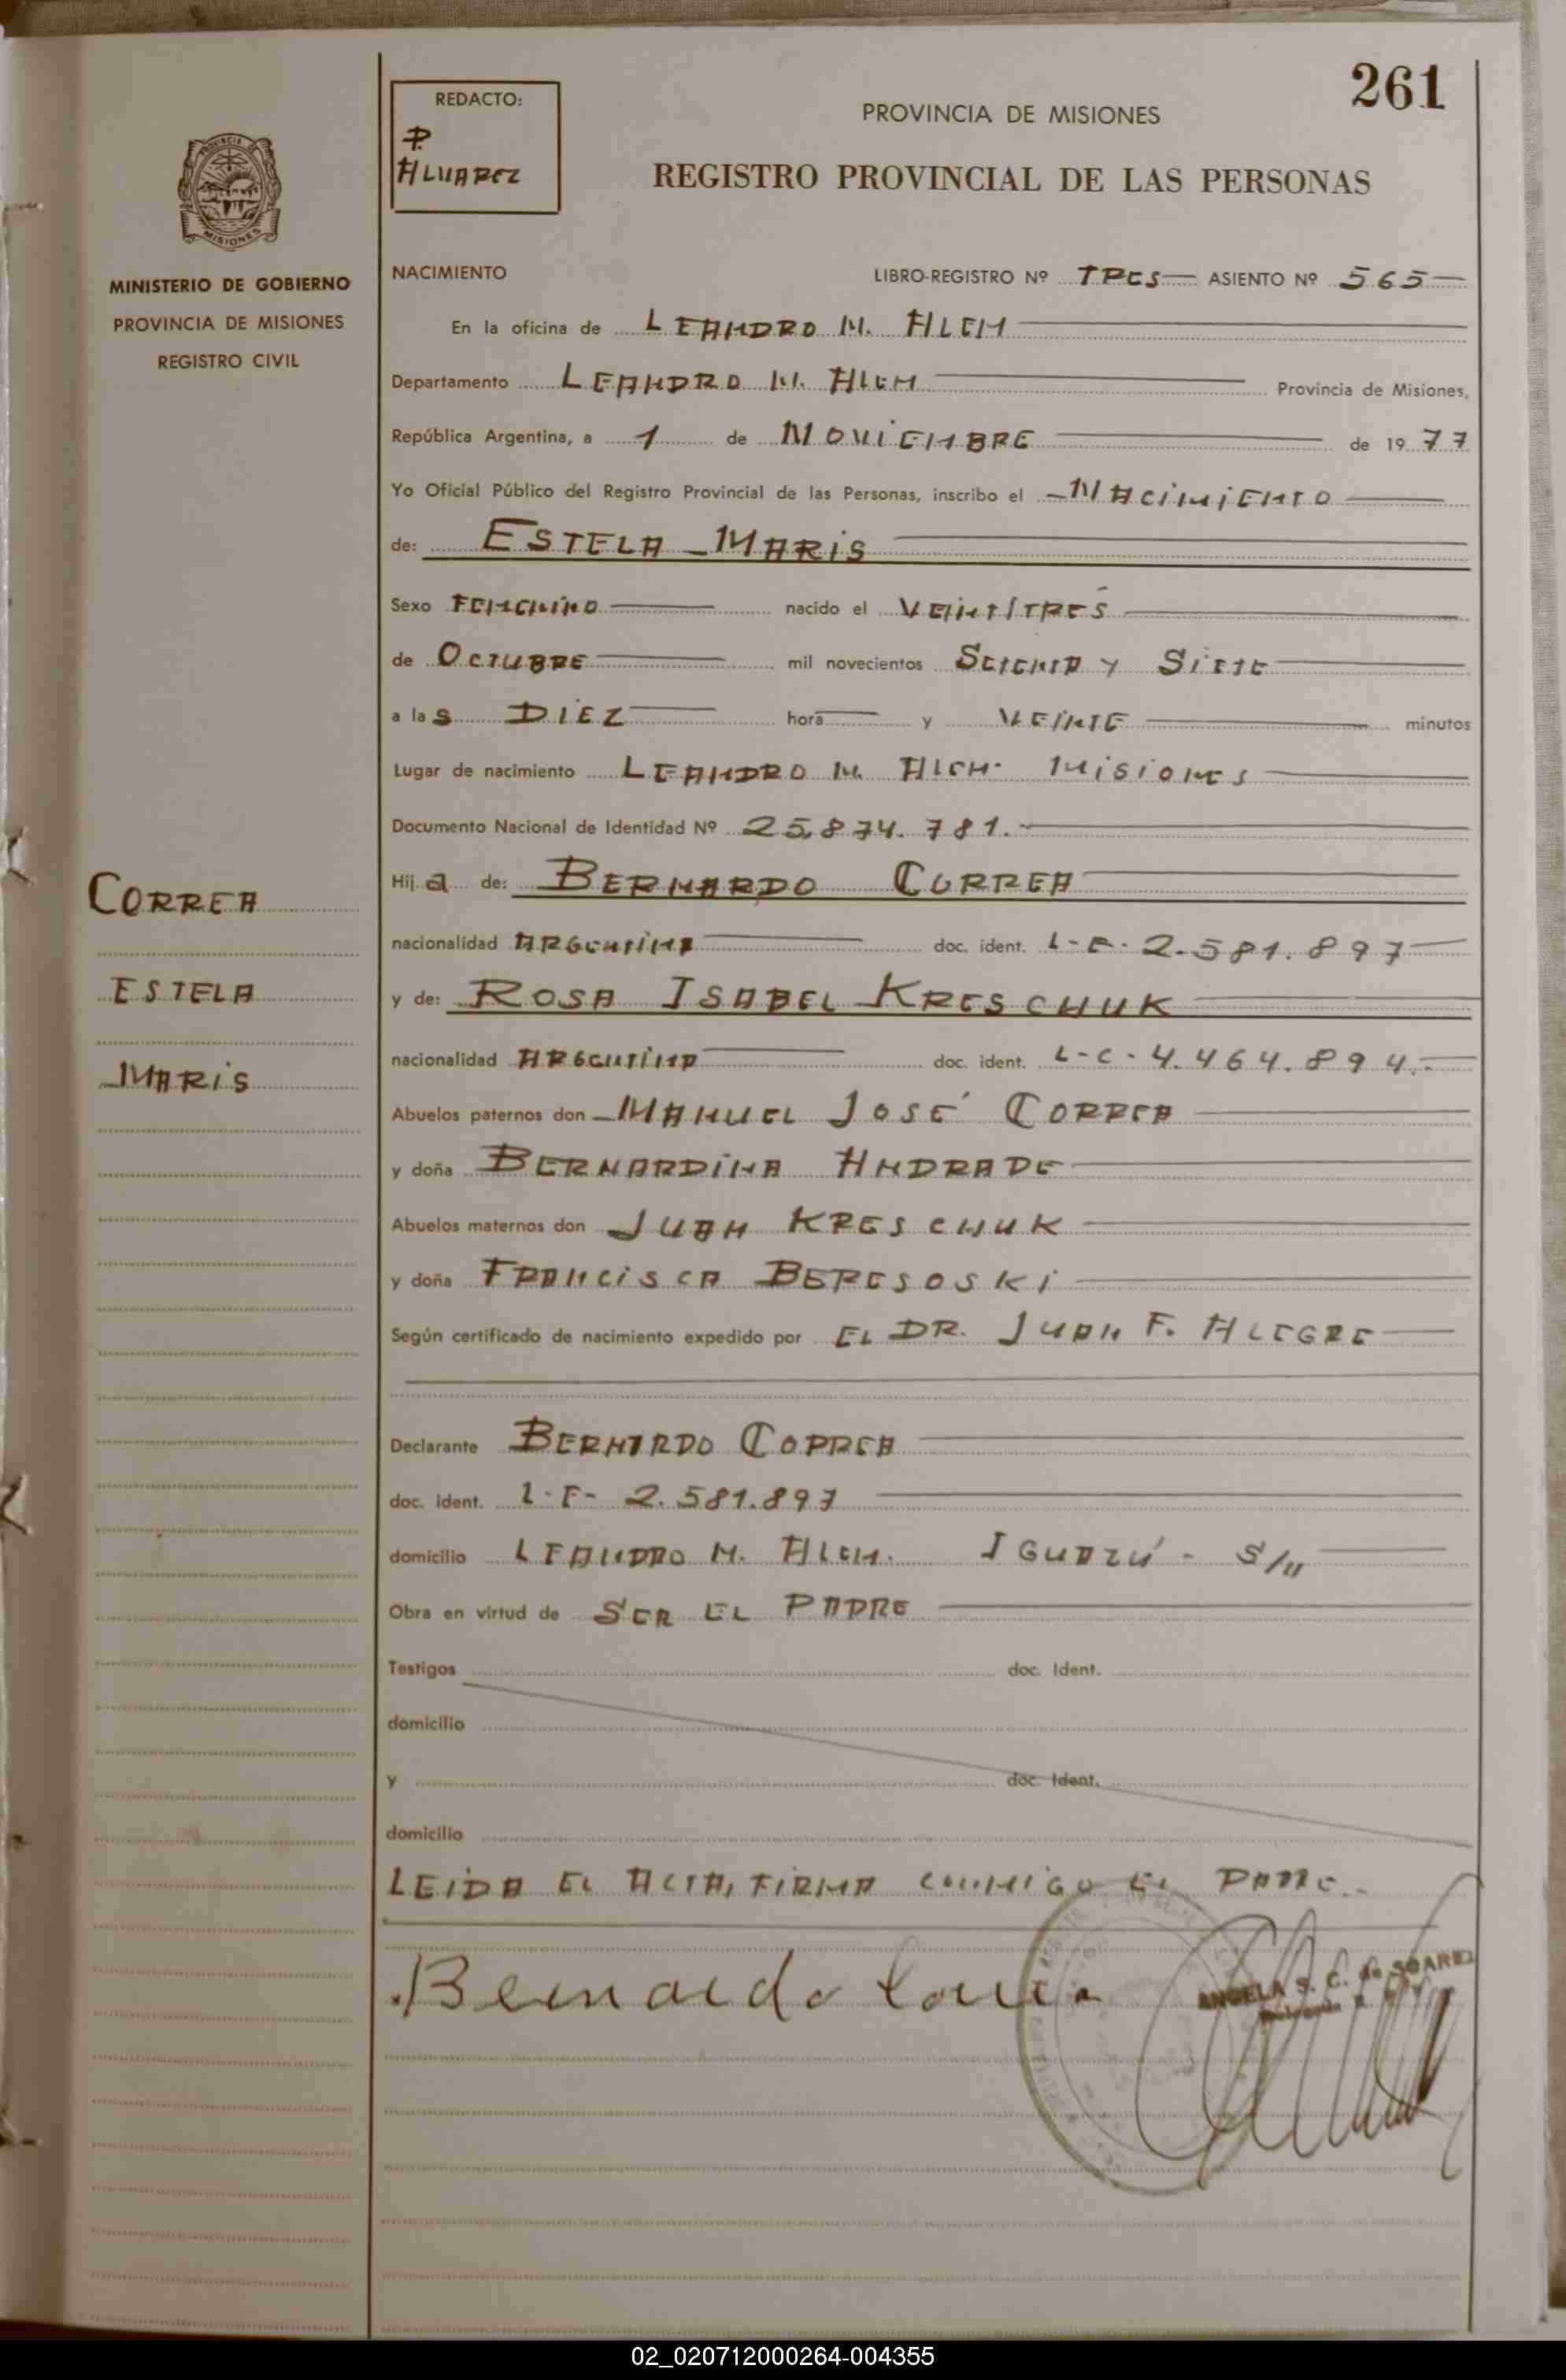 261
REDACTO:
P.
ALVAREZ
PROVINCIA DE MISIONES
REGISTRO PROVINCIAL DE LAS PERSONAS
MISIONES
MINISTERIO DE GOBIERNO
PROVINCIA DE MISIONES
REGISTRO CIVIL
NACIMIENTO LIBRO-REGISTRO Nº TRES ASIENTO Nº 565
En la oficina de LEANDRO N. ALEM
Departamento LEANDRO N. ALEM Provincia de Misiones,
República Argentina, a 1 de NOVIEMBRE de 1977
Yo Oficial Público del Registro Provincial de las Personas, inscribo el NACIMIENTO
de: ESTELA MARIS
Sexo FEMENINO nacido el VEINTITRES
de OCTUBRE mil novecientos SETENTA Y SIETE
a las DIEZ hora y VEINTE minutos
Lugar de nacimiento LEANDRO N. ALEM. MISIONES
Documento Nacional de Identidad Nº 25.874.781.
CORREA
ESTELA
MARIS
Hija de: BERNARDO CORREA
nacionalidad ARGENTINA doc. ident. L-E-2.581.897
y de: ROSA ISABEL KRESCHUK
nacionalidad ARGENTINA doc. ident. L-C-4.464.894.
Abuelos paternos don MANUEL JOSÉ CORREA
y doña BERNARDINA ANDRADE
Abuelos maternos don JUAN KRESCHUK
y doña FRANCISCA BERESOSKI
Según certificado de nacimiento expedido por EL DR. JUAN F. ALEGRE
Declarante BERNARDO CORREA
doc. ident. L-E- 2.581.897
domicilio LEANDRO N. ALEM. IGUAZÚ - S/N
Obra en virtud de SER EL PADRE
Testigos doc. Ident.
domicilio
y doc. Ident.
domicilio
LEIDA EL ACTA, FIRMA CONMIGO EL PADRE.
Bernardo Correa
ANGELA S. C. de SOAREZ
02_020712000264-004355